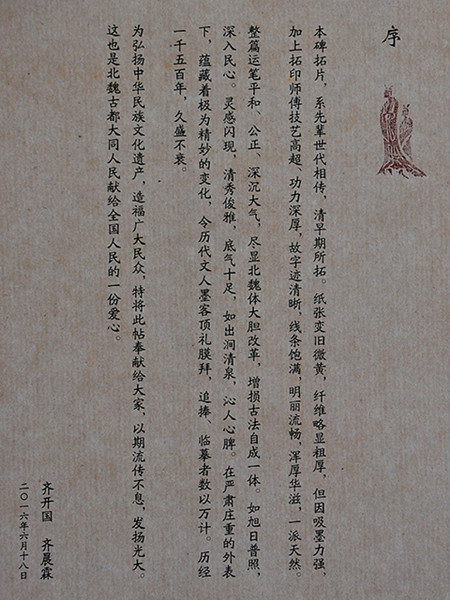 序
本碑拓片，系先辈世代相传，清早期所拓。纸张变旧微黄，纤维略显粗厚，但因吸墨力强，
加上拓印师傅技艺高超、功力深厚，故字迹清晰，线条饱满，明丽流畅，浑厚华滋，一派天然。
整篇运笔平和、公正、深沉大气，尽显北魏体大胆改革，增损古法自成一体。如旭日普照，
深入民心。灵感闪现，清秀俊雅，底气十足，如出涧清泉，沁人心脾。在严肃庄重的外表
下，蕴藏着极为精妙的变化，令历代文人墨客顶礼膜拜，追捧、临摹者数以万计。历经
一千五百年，久盛不衰。
为弘扬中华民族文化遗产，造福广大民众，特将此帖奉献给大家，以期流传不息，发扬光大。
这也是北魏古都大同人民献给全国人民的一份爱心。
齐开国 齐晨霖
二〇一六年六月十八日